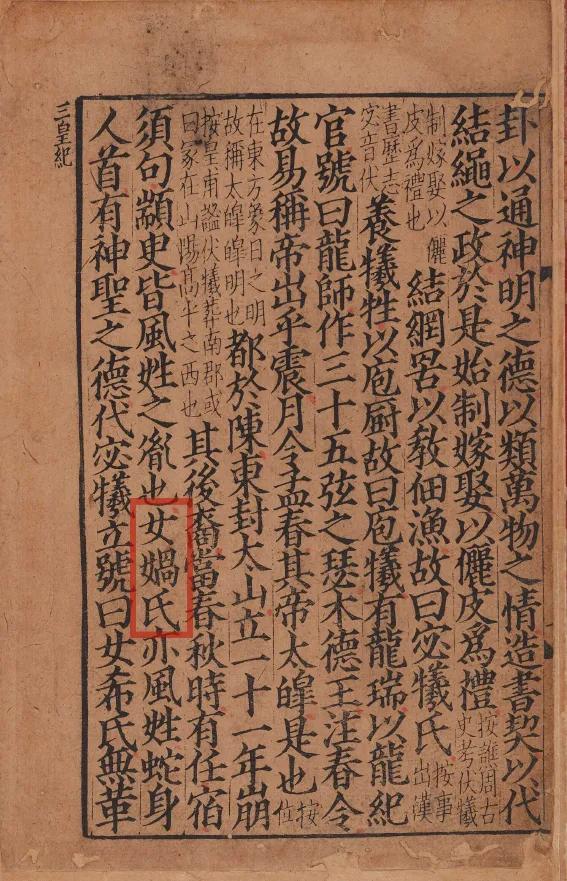 卦以通神明之德以類萬物之情造書契以代
結繩之政於是始制嫁娶以儷皮爲禮按譙周古史考伏犧
制嫁娶以儷皮爲禮也結網罟以敎佃漁故曰宓犧氏按事出漢
書歷志宓音伏養犧牲以庖厨故曰庖犧有龍瑞以龍紀
官號曰龍師作三十五弦之瑟木德王注春令
故易稱帝出乎震月令孟春其帝太皥是也按位
在東方象日之明故稱太皥皥明也都於陳東封太山立一十一年崩
按皇甫謐伏犧葬南郡或曰冢在山陽高平之西也其後裔當春秋時有任宿
須句顓臾皆風姓之胤也女媧氏亦風姓蛇身
人首有神聖之德代宓犧立號曰女希氏無革
三皇紀